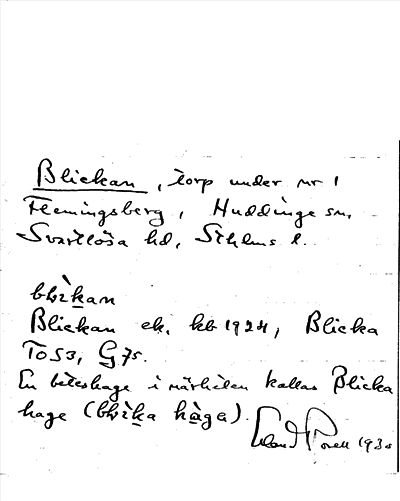 Blickan, torp under nr 1
Flemingsberg, Huddinge sn,
Svartlösa hd, Sthlms l.
blìkan
Blickan ek. kb 1924, Blicka
To53, G75.
En beteshage i närheten kallas Blicka
hage (blìka hàga).
1930